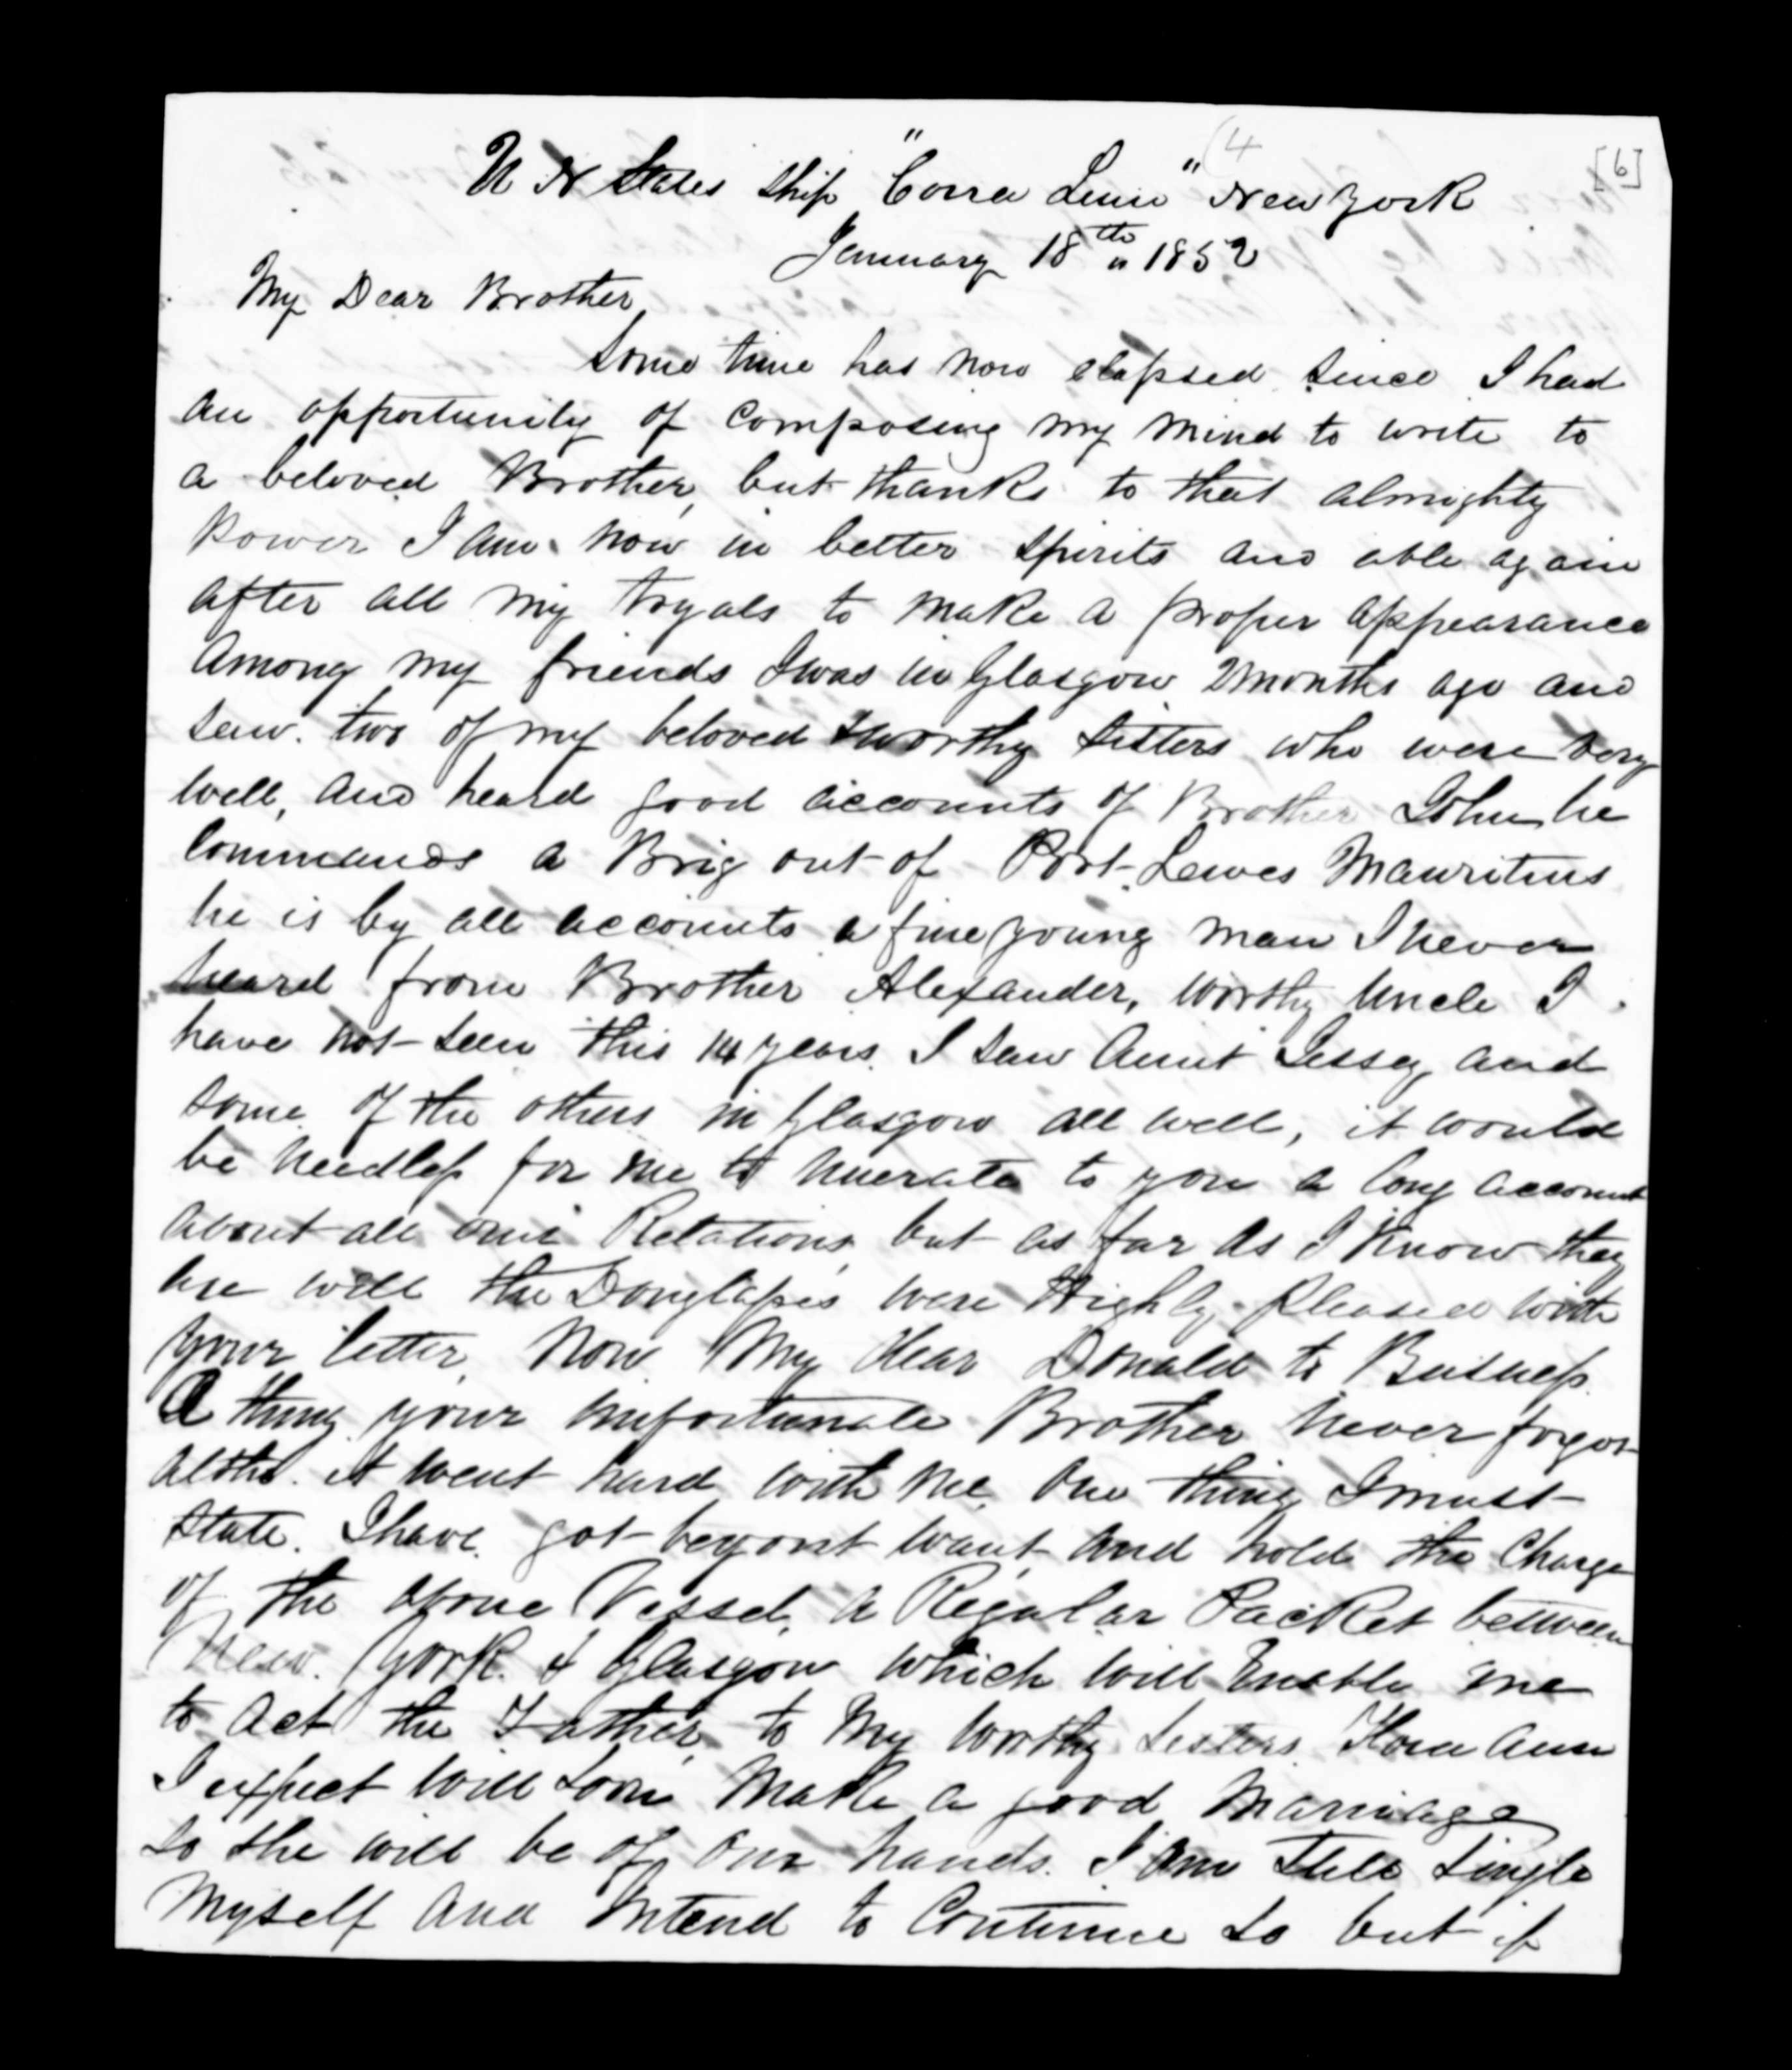 (4
[6]
U N States Ship "Corra Linn" New York
January 18th 1852
My Dear Brother
Some time has now elapsed since I had
an opportunity of composing my mind to write to
a beloved Brother, but thanks to that almighty
Power I am now in better spirits and able again
after all my tryals to make a proper appearance
among my friends I was in Glasgow 2 months ago and
saw two of my beloved & worthy Sisters who were very
well, and heard good accounts of Brother John he
Commands a Brig out of Port Lewes Mauritius
he is by all accounts a fine young man I never
heard from Brother Alexander, worthy Uncle I
have not seen this 14 years. I saw Aunt Jessey and
some of the others in Glasgow all well, it would
be needless for me to nuerate to you a long account
about all our Relations, but as far as I know they
are well the Douglass's were Highly pleased with
your letter, Now My dear Donald to Buisness
A thing your unfortunate Brother never forgot
altho it went hard with me, One thing I must
state. I have got beyont want, and hold the Charge
of the above Vessel, a Regular Packet between
New York & Glasgow which will Enable me
to act the Father to My Worthy Sisters. Ann
I expect will soon make a good Marriage
so she will be of our hands. I am Still Single
Myself and Intend to Continue so but if